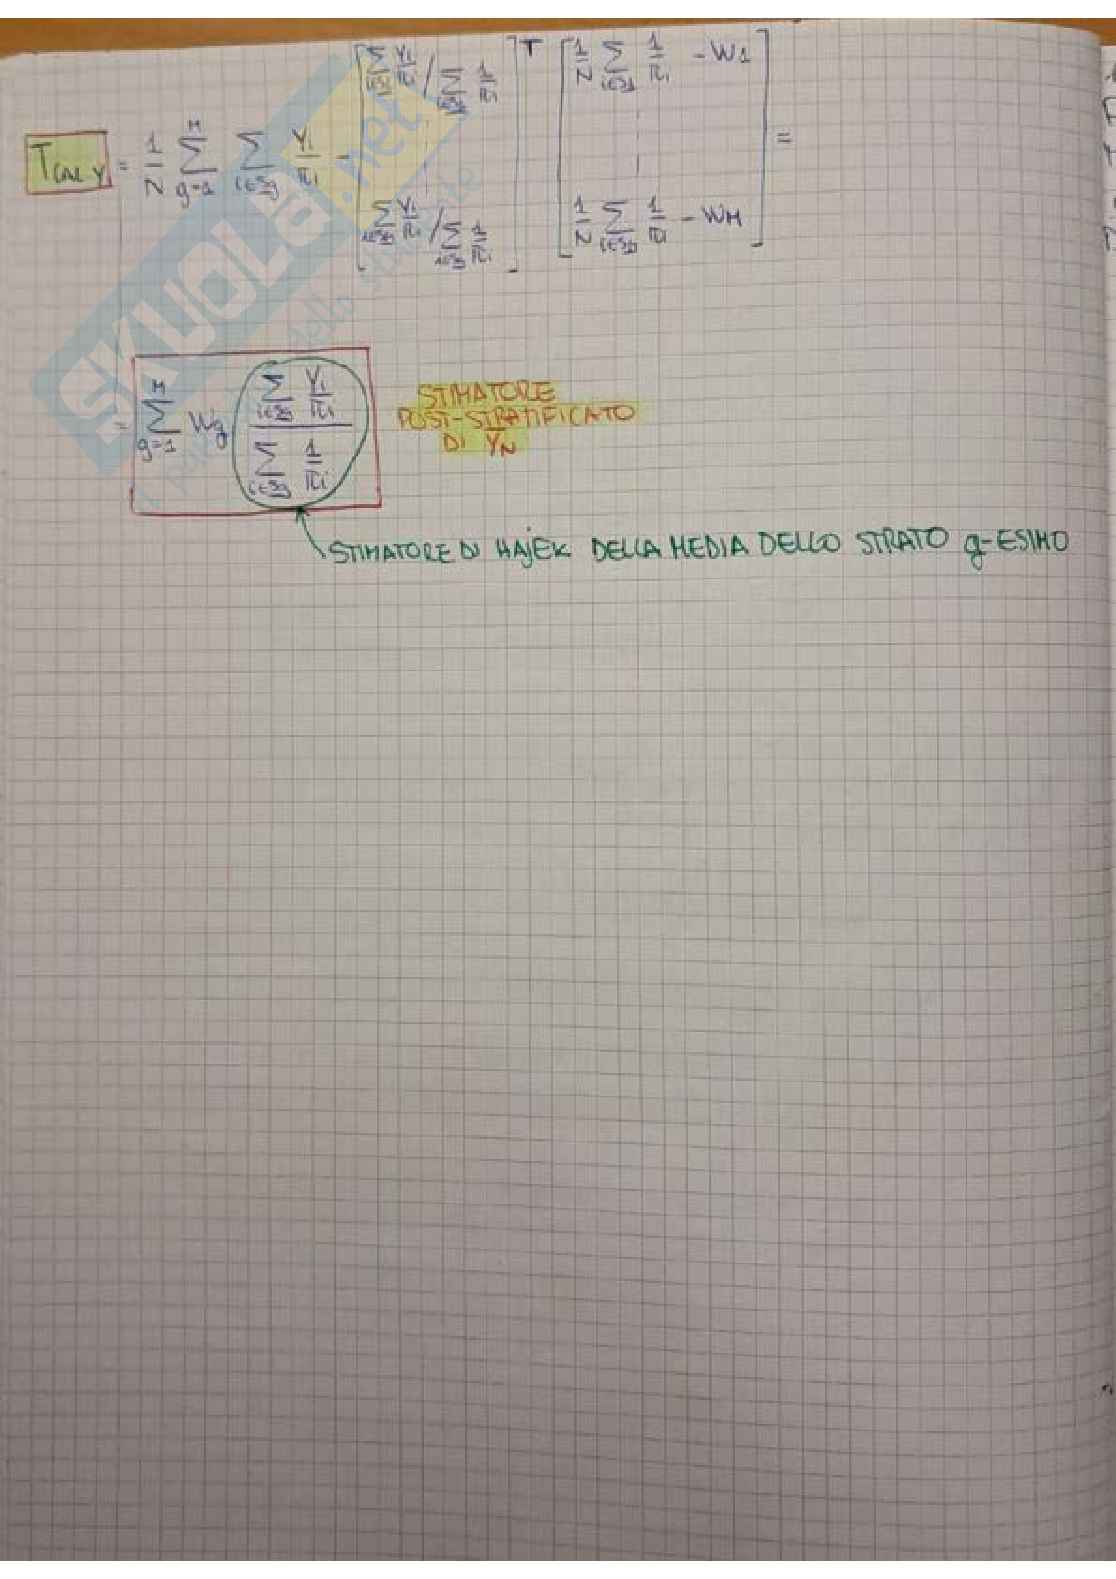 T_CAL,Y = 1/N Σ_{g=1}^{M} Σ_{i∈Sg} Yi/πi - [Σ_{i∈S1} Yi/πi / Σ_{i∈S1} 1/πi ⋮ Σ_{i∈SM} Yi/πi / Σ_{i∈SM} 1/πi]^T [1/N Σ_{i∈S1} 1/πi - W1 ⋮ 1/N Σ_{i∈SM} 1/πi - WM] =
= Σ_{g=1}^{M} Wg (Σ_{i∈Sg} Yi/πi) / (Σ_{i∈Sg} 1/πi)
STIMATORE
POST-STRATIFICATO
DI ȲN
STIMATORE DI HAJEK DELLA MEDIA DELLO STRATO g-ESIMO
SKUOLA.net